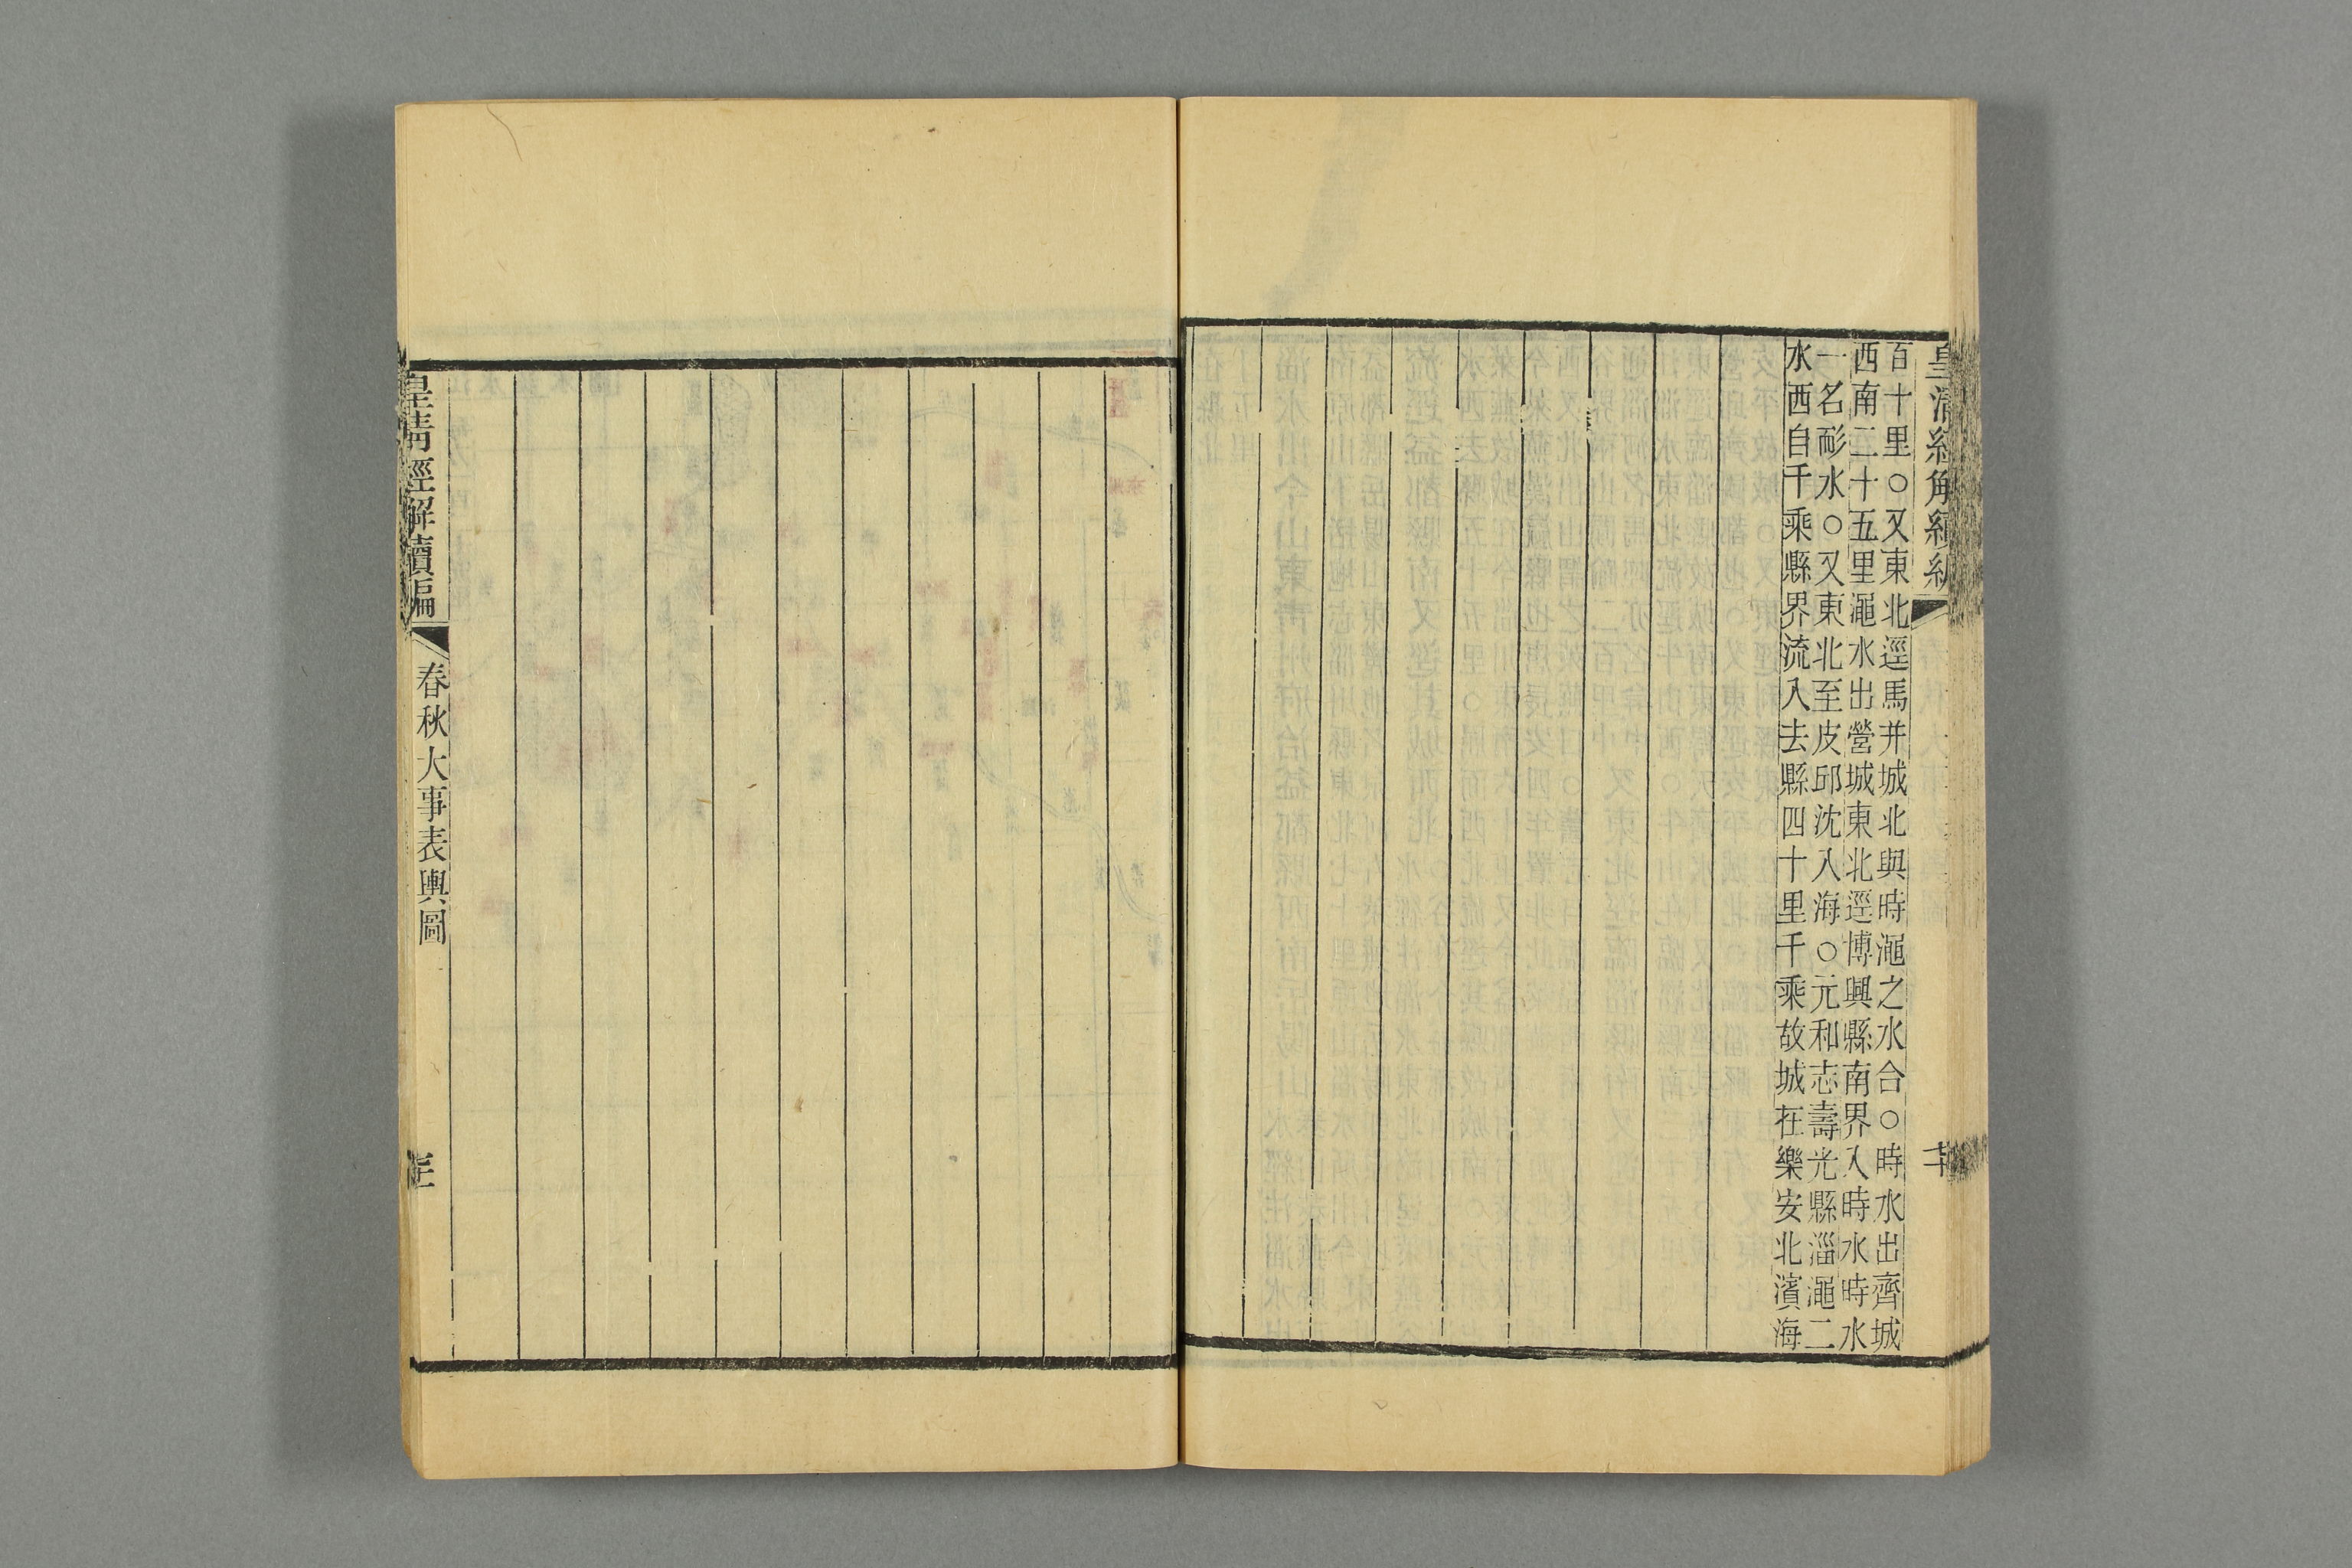 皇清經解續編
百十里○又東北逕馬井城北與時澠之水合○時水出齊城
西南二十五里澠水出營城東北逕博興縣南界入時水時水
一名耏水○又東北至皮邱沈入海○元和志壽光縣淄澠二
水西自千乘縣界流入去縣四十里千乘故城在樂安北濱海
皇清經解續編
春秋大事表輿圖